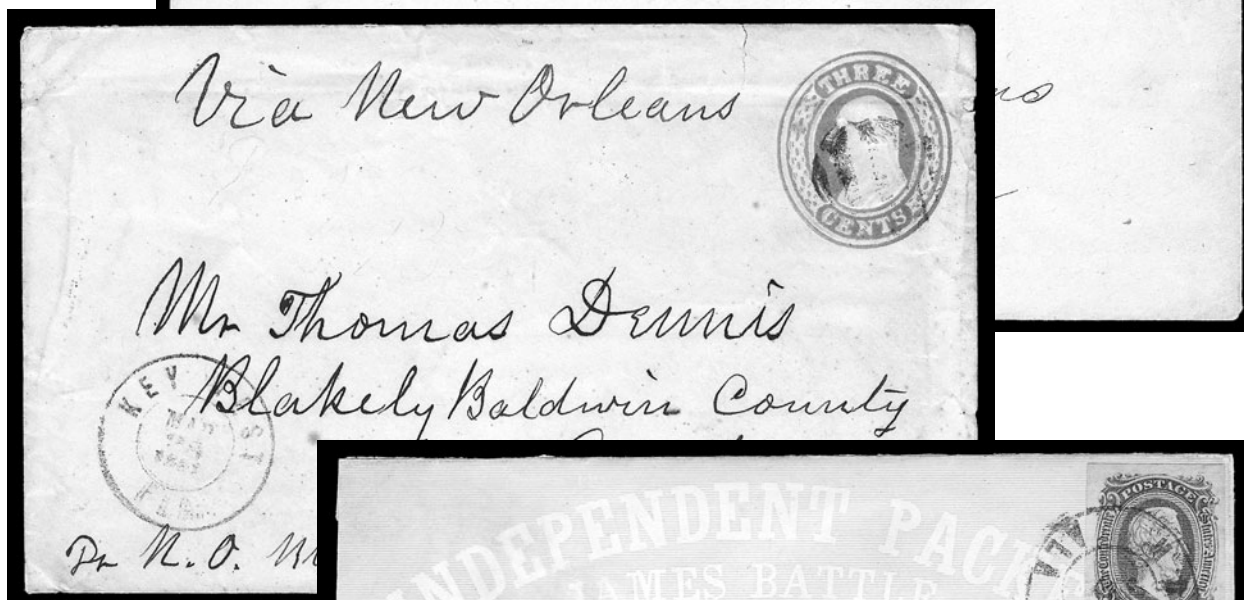 Via New Orleans
THREE
CENTS
Mr Thomas Dennis
Blakely Baldwin County
KEY WEST
MAR
N. O.
INDEPENDENT PACK
JAMES BATTLE
POSTAGE